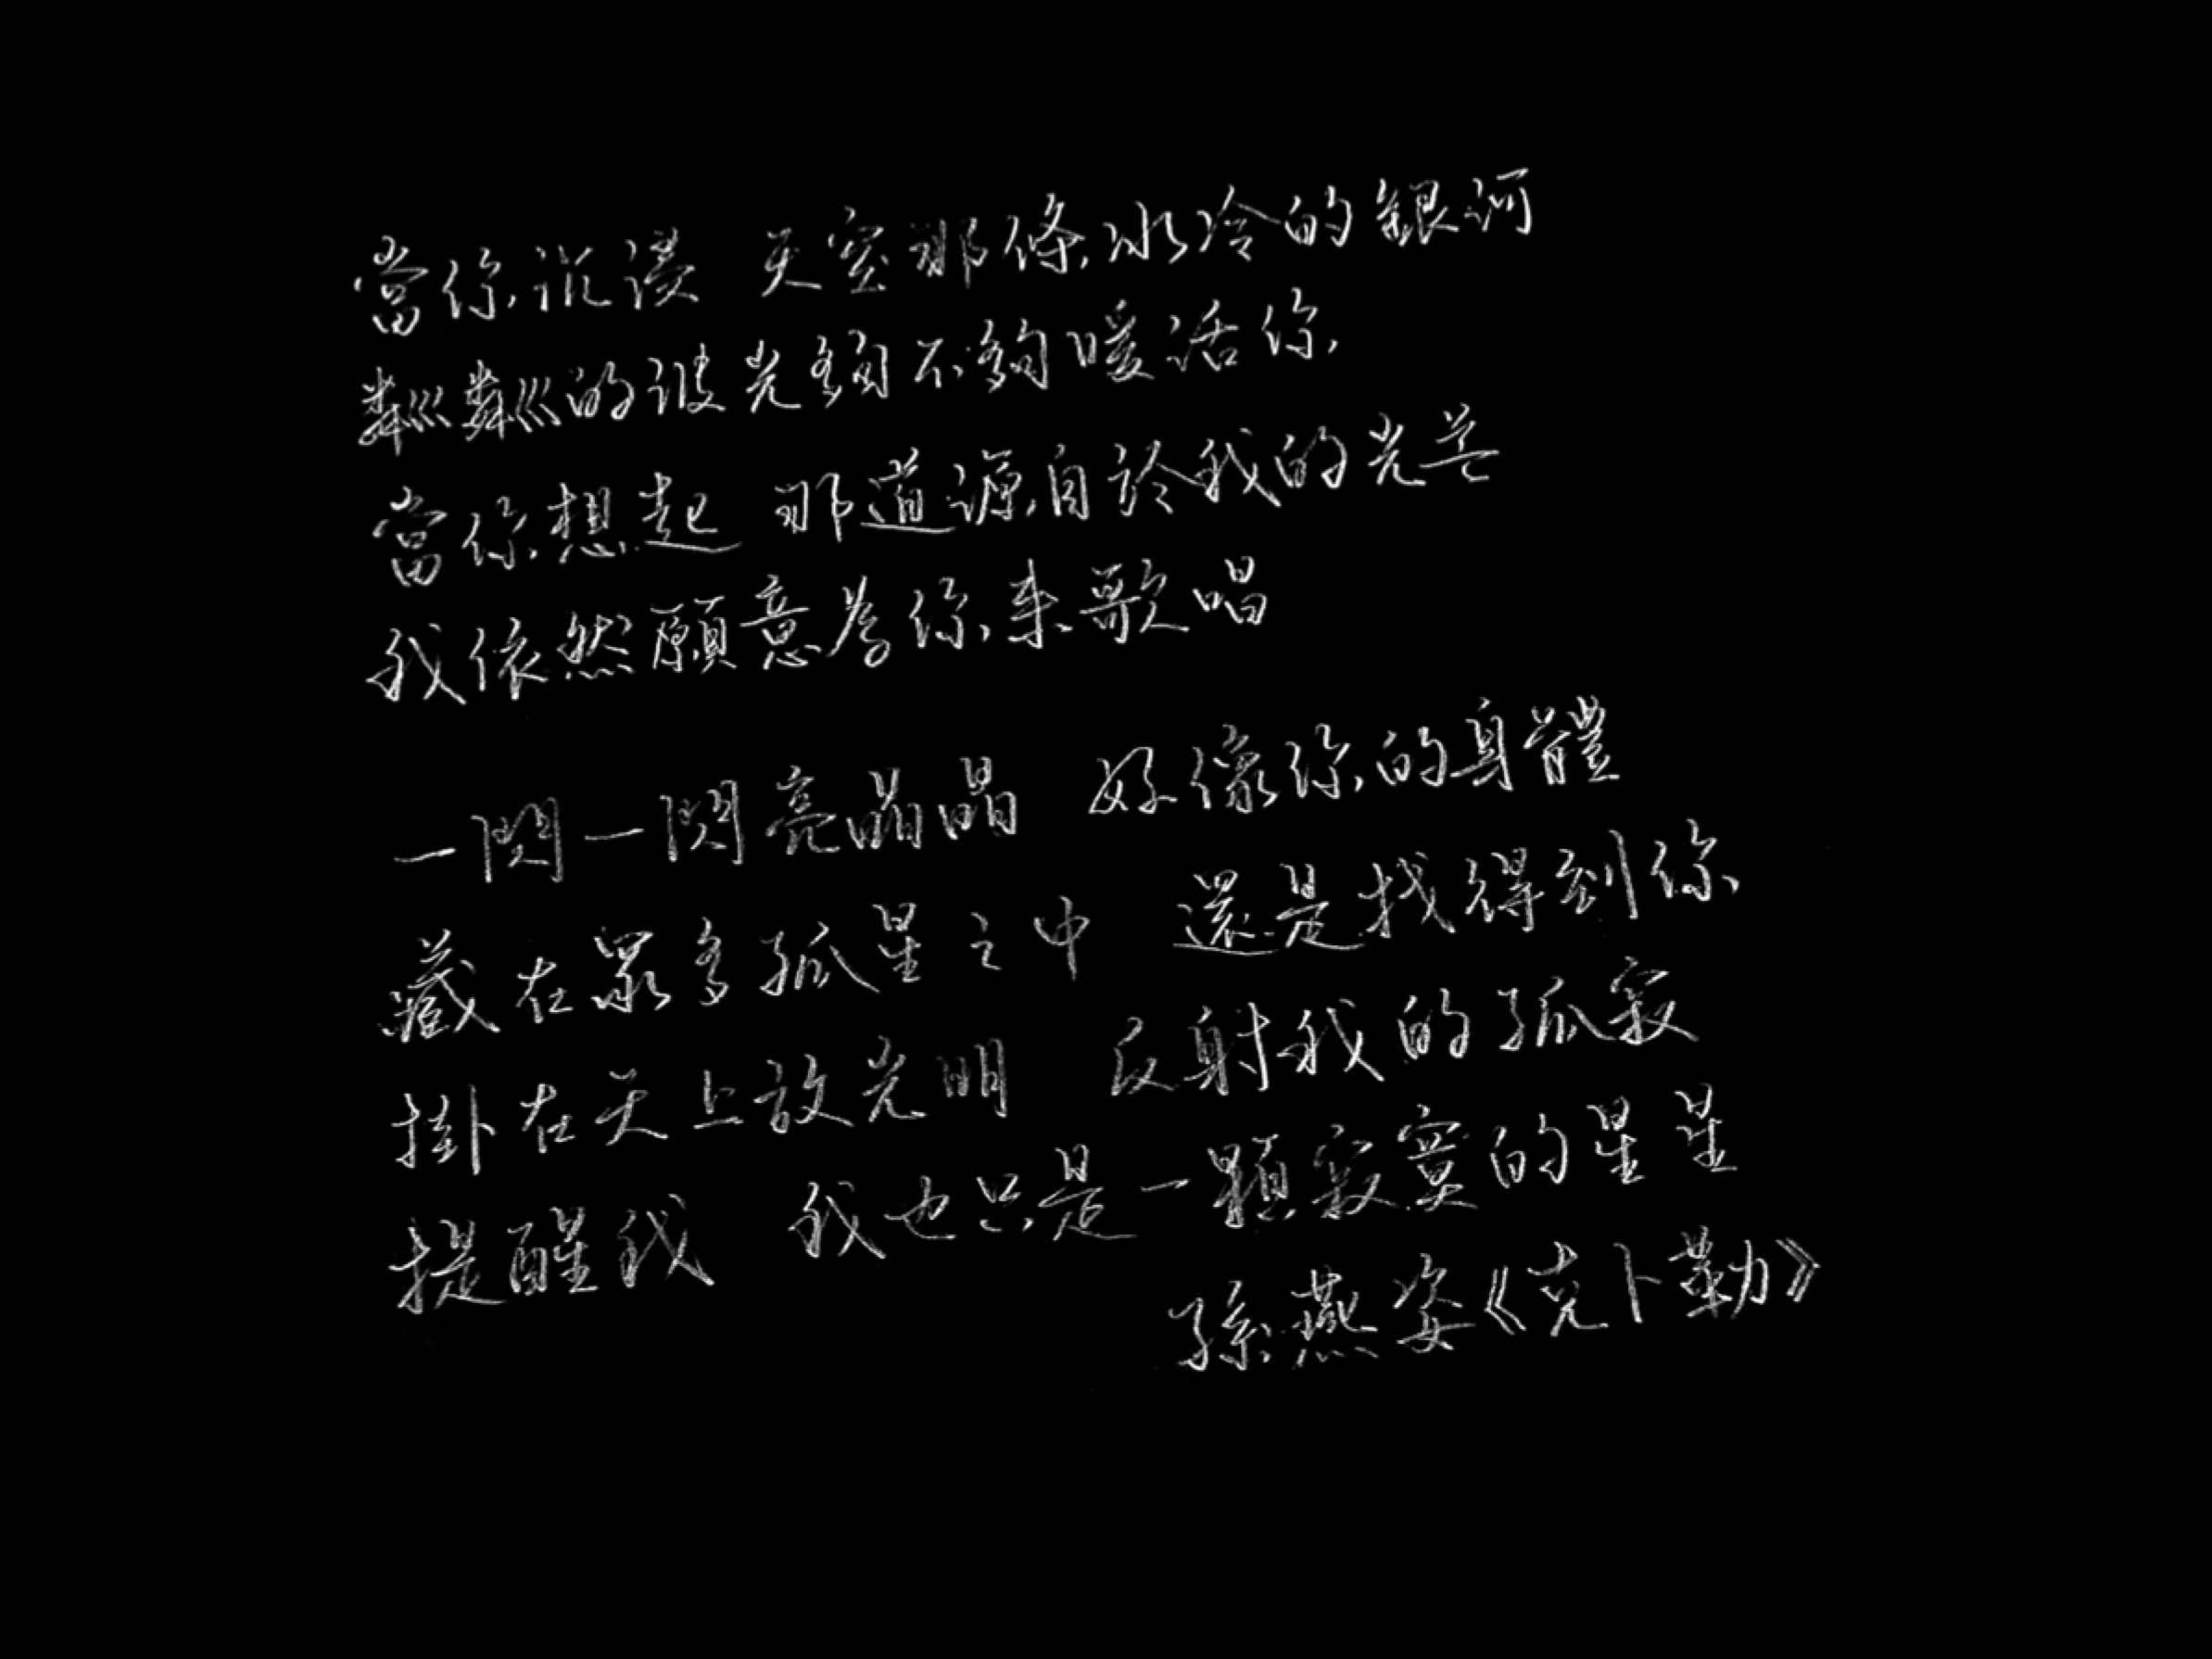 當你沉浸 天空那條冰冷的銀河
粼粼的波光夠不夠暖活你
當你想起 那道源自於我的光芒
我依然願意為你來歌唱
一閃一閃亮晶晶 好像你的身體
藏在眾多孤星之中 還是找得到你
掛在天上放光明 反射我的孤寂
提醒我 我也只是一顆寂寞的星星
孫燕姿《克卜勒》